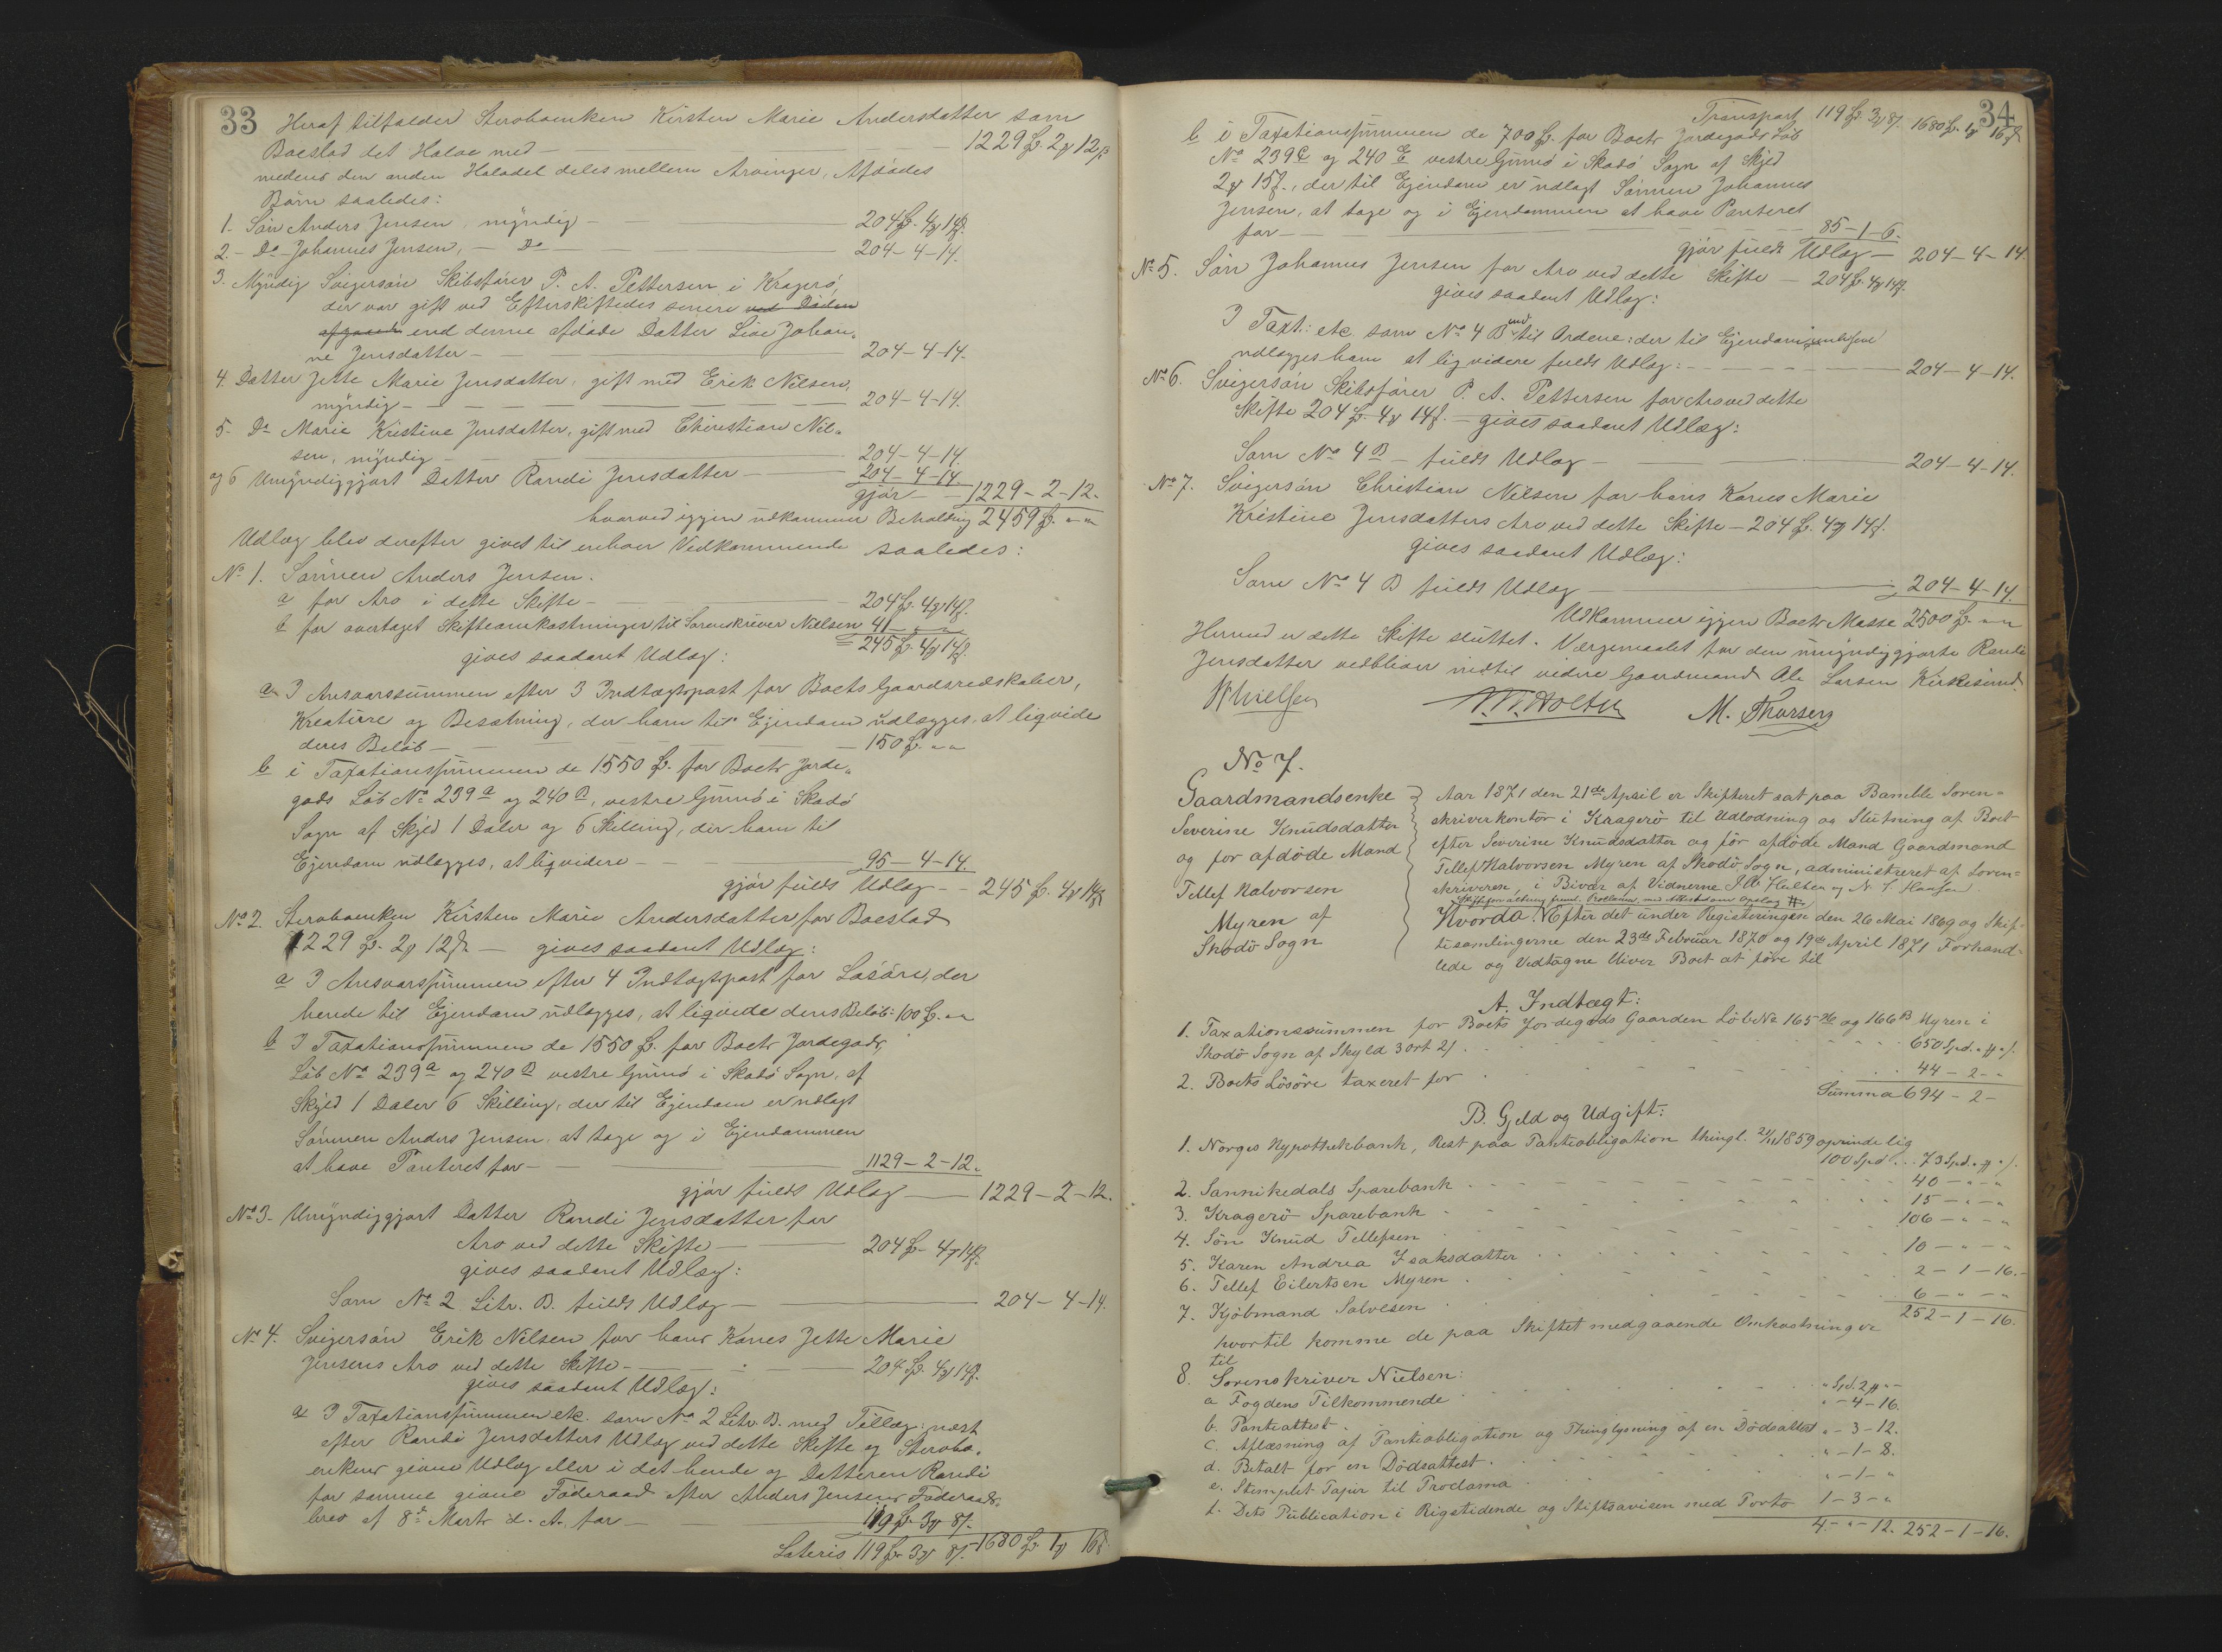 33
Heraf tilfalder Stervboenken Kirsten Marie Andersdatter som
Boeslod det Halve med — 1229 Sp. 2 # 12 ß
medens den anden Halvdel deles mellem Arvinger, Afdødes
Børn saaledes:
1. Søn Anders Jensen, myndig — 204 Sp. 4 # 14 ß.
2. — Do — Johannes Jensen, — Do — 204 – 4 – 14.
3. Myndig Svigersøn Skibsfører P. A. Pettersen i Kragerø,
der var gift ved Efterskiftedes senere ved Døden
afgaaede end denne afdøde Datter Live Johan-
ne Jensdatter — 204 – 4 – 14.
4. Datter Jette Marie Jensdatter, gift med Erik Nilsen,
myndig — 204 – 4 – 14.
5. Do Marie Kristine Jensdatter, gift med Christian Nil-
sen, myndig — 204 – 4 – 14.
og 6 Umyndiggjort Datter Randi Jensdatter — 204 – 4 – 14.
gjør — 1229 – 2 – 12.
hvorved igjen udkommer Beholdning 2459 Sp. " "
Udlæg blev derefter givet til enhver Vedkommende saaledes:
No 1. Sønnen Anders Jensen.
a for Arv i dette Skifte — 204 Sp. 4 # 14 ß.
b for overtaget Skifteomkostninger til Sorenskriver Nielsen 41 — " "
= 245 Sp. 4 # 14 ß.
gives saadant Udlæg:
a I Ansvarssummen efter 3 Indtægtspost for Boets Gaardsredskaber,
Kreaturer og Besætning, der ham til Ejendom udlægges, at liqvide
deres Beløb — 150 Sp. " "
b i Taxationssummen de 1550 Sp. for Boets Jorde-
gods Løb No 239 a og 240 B, vestre Gumø i Skadø
Sogn af Skyld 1 Daler og 6 Skilling, der ham til
Ejendom udlægges, at liqvidere — 95 – 4 – 14.
gjør fulds Udlæg — 245 Sp. 4 # 14 ß
No 2. Stervboenken Kirsten Marie Andersdatter for Boeslod
1229 Sp. 2 # 12 ß — gives saadant Udlæg:
a I Ansvarssummen efter 4 Indtægtspost for Løsøre, der
hende til Ejendom udlægges, at liqvide deres Beløb: 100 Sp. " "
b I Taxationssummen de 1550 Sp. for Boets Jordegods,
Løb No 239 a og 240 B vestre Gumø i Skadø Sogn, af
Skyld 1 Daler 6 Skilling, der til Ejendom er udlagt
Sønnen Anders Jensen, at tage og i Ejendommen
at have Panteret for — 1129 – 2 – 12.
gjør fulds Udlæg — 1229 – 2 – 12.
No 3. Umyndiggjort Datter Randi Jensdatter for
Arv ved dette Skifte — 204 Sp. 4 # 14 ß.
gives saadant Udlæg:
Som No 2 Litr. B. fulds Udlæg — 204 – 4 – 14.
No 4. Svigersøn Erik Nilsen for hans Kones Jette Marie
Jensens Arv ved dette Skifte — 204 Sp. 4 # 14 ß.
gives saadant Udlæg:
a I Taxationssummen etc. som No 2 Litr. B. med Tillæg: næst
efter Randi Jensdatters Udlæg ved dette Skifte og Stervbo-
enkens givne Udlæg eller i det hende og Datteren Randi
for samme givne Føderaad efter Anders Jensens Føderaads-
brev af 8de Marts d. A., for — 119 Sp. 3 # 8 ß.
Lateris 119 Sp. 3 # 8 ß. – 1680 Sp. 1 # 16 ß
34
Transport 119 Sp. 3 # 8 ß. 1680 Sp. 1 # 16 ß
b i Taxationssummen de 700 Sp. for Boets Jordegods Løb
No 239 C og 240 E vestre Gumø i Skadø Sogn af Skyld
2 # 15 ß., der til Ejendom er udlagt Sønnen Johannes
Jensen, at tage og i Ejendommen at have Panteret
for — 85 – 1 – 6.
gjør fulds Udlæg — 204 – 4 – 14.
No 5. Søn Johannes Jensen for Arv ved dette Skifte — 204 Sp. 4 # 14 ß.
gives saadant Udlæg:
I Taxt: etc. som No 4 B ind til Ordene: der til Ejendom
udlægges ham at liqvidere fulds Udlæg: — 204 – 4 – 14.
No 6. Svigersøn Skibsfører P. A. Pettersen for Arv ved dette
Skifte 204 Sp. 4 # 14 ß. — gives saadant Udlæg:
Som No 4 B — fulds Udlæg — 204 – 4 – 14.
No 7. Svigersøn Christian Nilsen for hans Kones Marie
Kristine Jensdatters Arv ved dette Skifte — 204 Sp. 4 # 14 ß.
gives saadant Udlæg:
Som No 4 B fulds Udlæg — 204 – 4 – 14.
Udkommer igjen Boets Masse 2500 Sp. " "
Hermed er dette Skifte sluttet. Værgemaalet for den umyndiggjorte Randi
Jensdatter vedbliver indtil videre Gaardmand Ole Larsen Kirkesund.
Nielsen
Holter
M. Thorsen
No 7.
Gaardmandsenke
Severine Knudsdatter
og før afdöde Mand
Tellef Halvorsen
Myren af
Skodö Sogn
Aar 1871 den 21de April er Skifteret sat paa Bamble Soren-
skriverkontor i Kragerö til Udlodning og Slutning af Boet
efter Severine Knudsdatter og för afdöde Mand Gaardmand
Tellef Halvorsen Myren af Skodö Sogn, administreret af Soren-
skriveren, i Bivær af Vidnerne J. A. Holter og N. J. Hansen.
Hvorda: Efter det under Registreringen den 26 Mai 1869 og Skif-
tesamlingerne den 23de Februar 1870 og 19de April 1871 Forhand-
lede og Vedtagne bliver Boet at före til
A. Indtægt:
1. Taxationssummen for Boets Jordegods Gaarden Löb No 165 og 166 B Myren i
Skodö Sogn af Skyld 3 ort 21. 650 Spd. " # " ß.
2. Boets Lösöre taxeret for 44 – 2 – "
Summa 694 – 2 –
B. Gjeld og Udgift:
1. Norges Hypothekbank, Rest paa Pantobligation thingl. 21/11 1859 oprindelig
100 Spd... 73 Spd. " # " ß.
2. Sannikedals Sparebank 40 – " – "
3. Kragerö Sparebank 15 – " – "
4. Sön Knud Tellefsen 106 – " – "
5. Karen Andrea Isaksdatter 10 – " – "
6. Tellef Eilertsen Myren 2 – 1 – 16.
7. Kjöbmand Salvesen 6 – " – "
252 – 1 – 16.
hvortil komme de paa Skiftet medgaaende Omkostninger
til
8. Sorenskriver Nielsen:
a Fogdens Tilkommende " Spd. 2 # " –
b. Panteattest " – 4 – 16.
c. Aflæsning af Pantobligation og Thinglysning af en Dödsattest " – 3 – 12.
d. Betalt for en Dödsattest " – 1 – 8.
e. Stemplet Papir til Proclama " – 1 – "
f. Dets Publication i Rigstidende og Stiftsavisen med Porto 1 – 3 – "
4 – " – 12. 252 – 1 – 16.